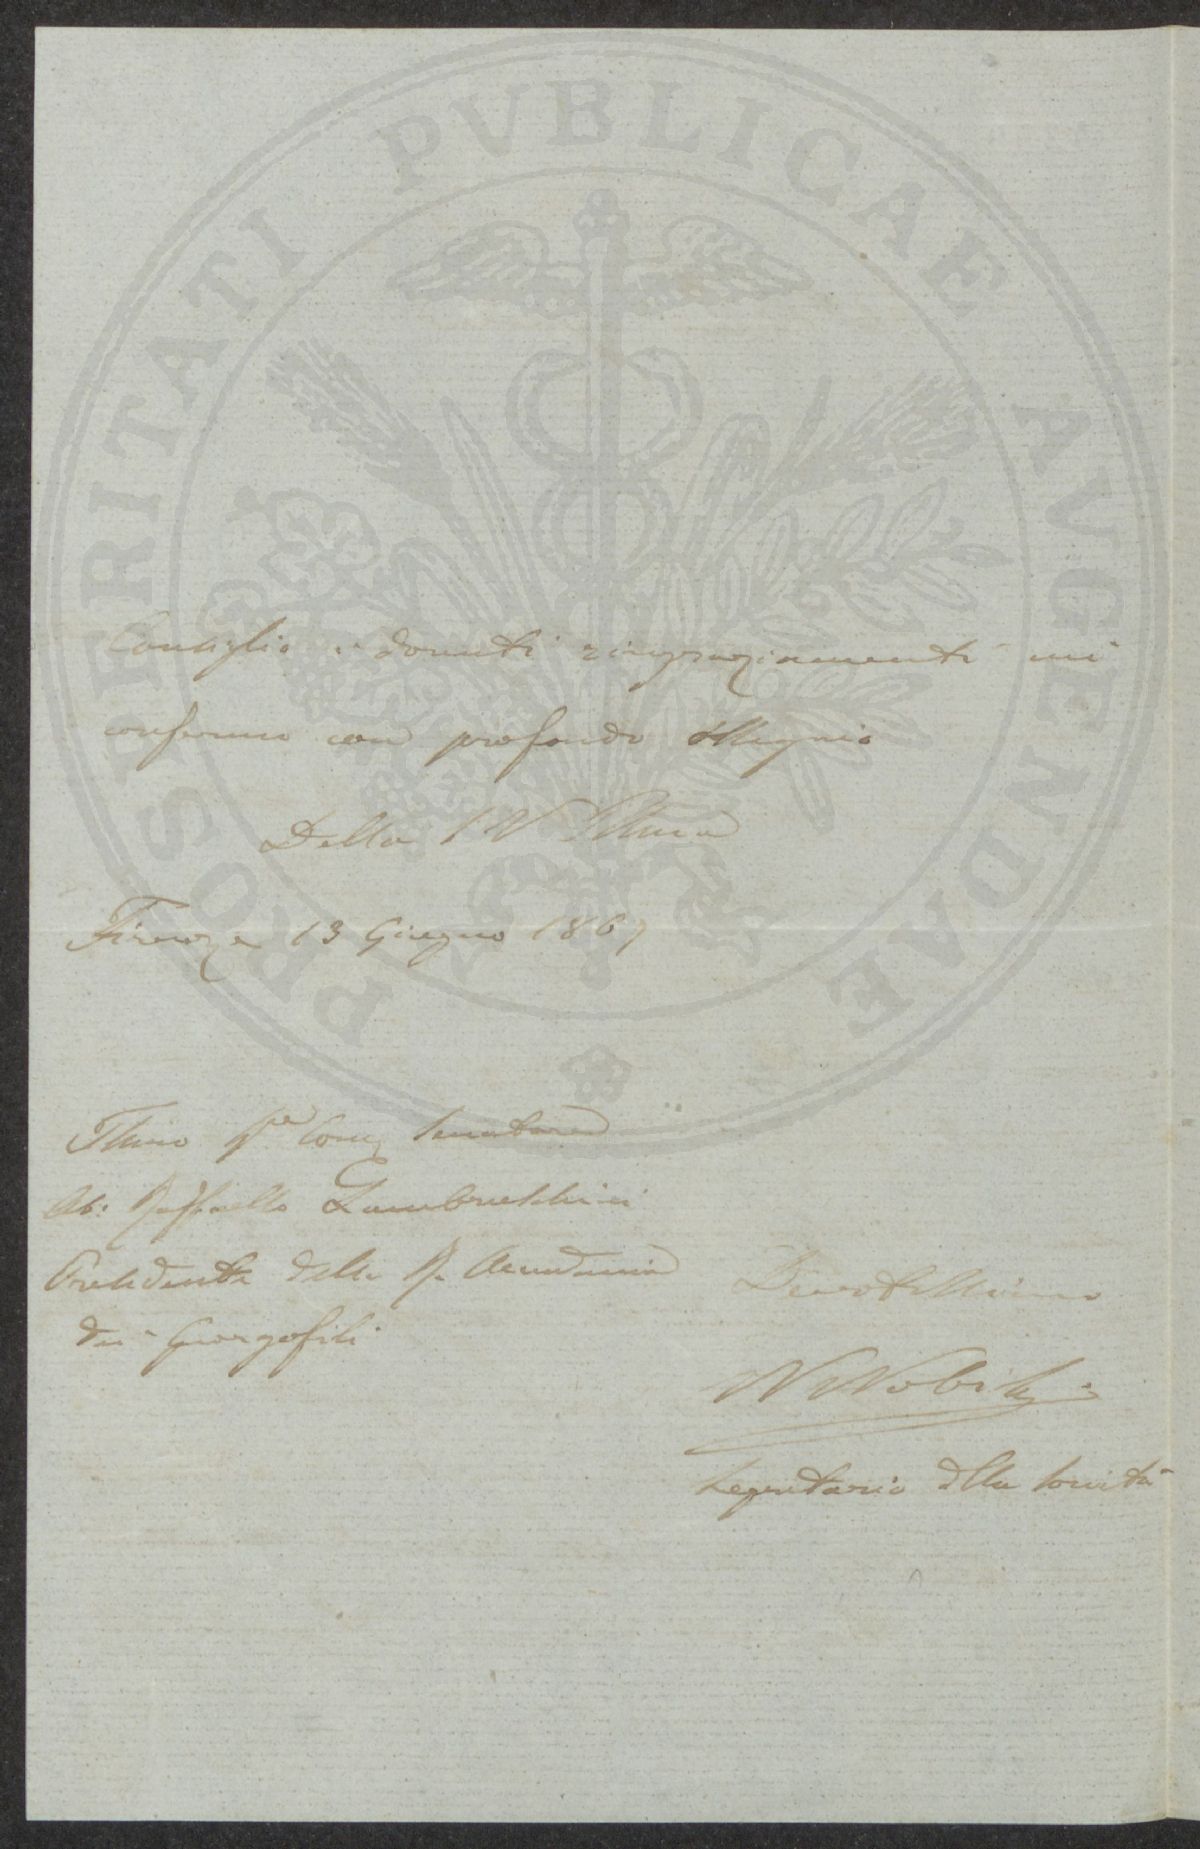 PROSPERITATI PUBLICAE AUGENDAE
Consiglio i dovuti ringraziamenti mi
confermo con profondo ossequio
Della S V Illma
Firenze 13 Giugno 1867
Illmo Sre Comm Senatore
Ab: Raffaello Lambruschini
Presidente della R. Accademia
dei Georgofili
Devotissimo
N Nobili
Segretario della Società